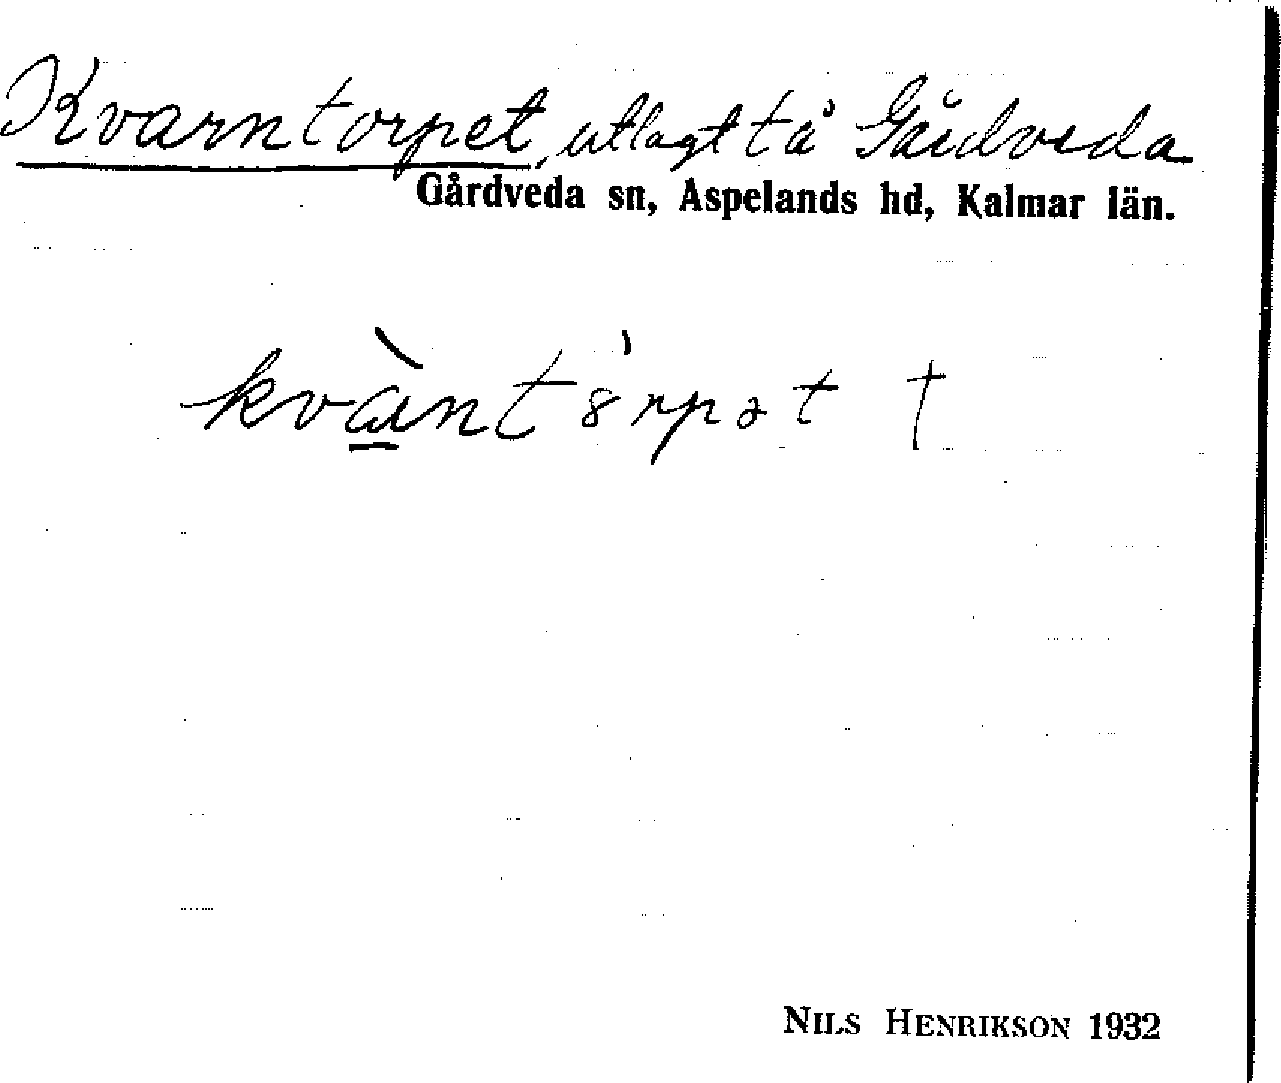 Kvarntorpet, utlagt t å Gårdveda
Gårdveda sn, Aspelands hd, Kalmar län.
kvàntȣ̀rpət †
NILS HENRIKSON 1932